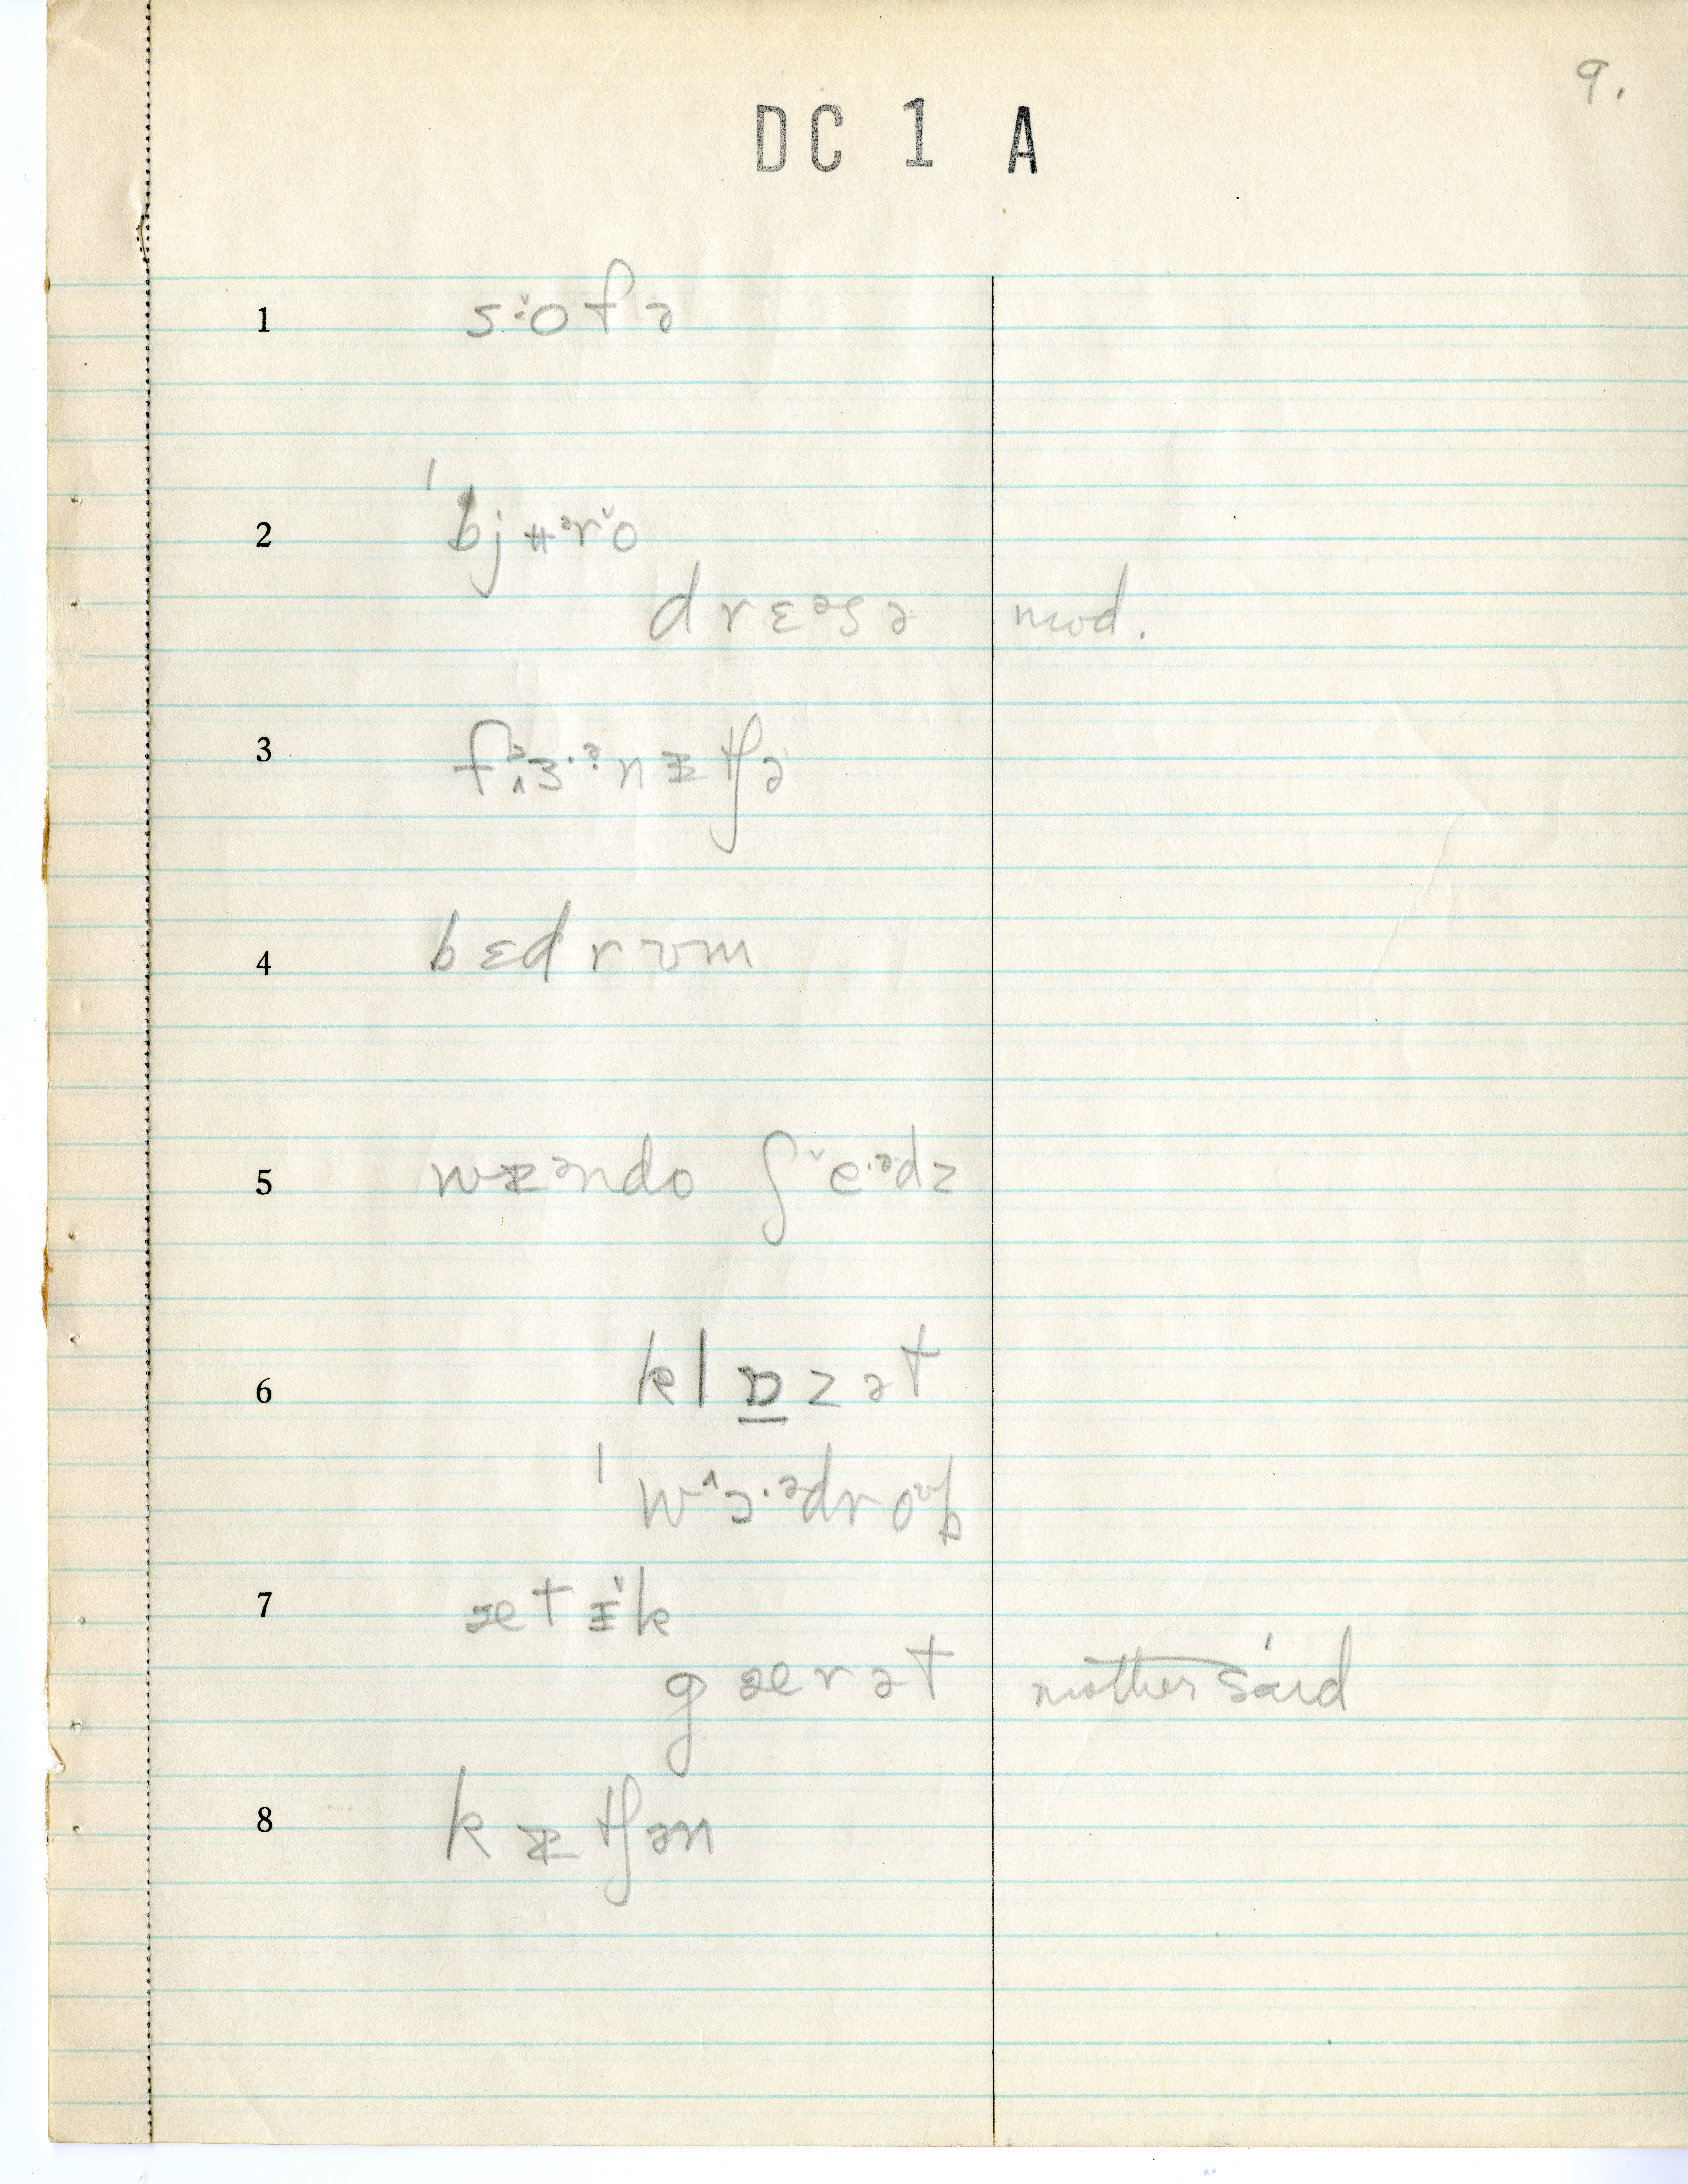 9.
DC 1 A
1 s˅·ofə
2 ˈbjʉᵊr˅o
drɛᵊsə mod.
3 fɜ·ᵊnɪtʃə
4 bɛdrʊm
5 wɪᵊndo ʃ˅e·ᵊdz
6 klɒ̱zət
ˈw^ɔ·ᵊdroᶷb
7 ætɪ˅k
gærət mother sáid
8 kɪtʃən